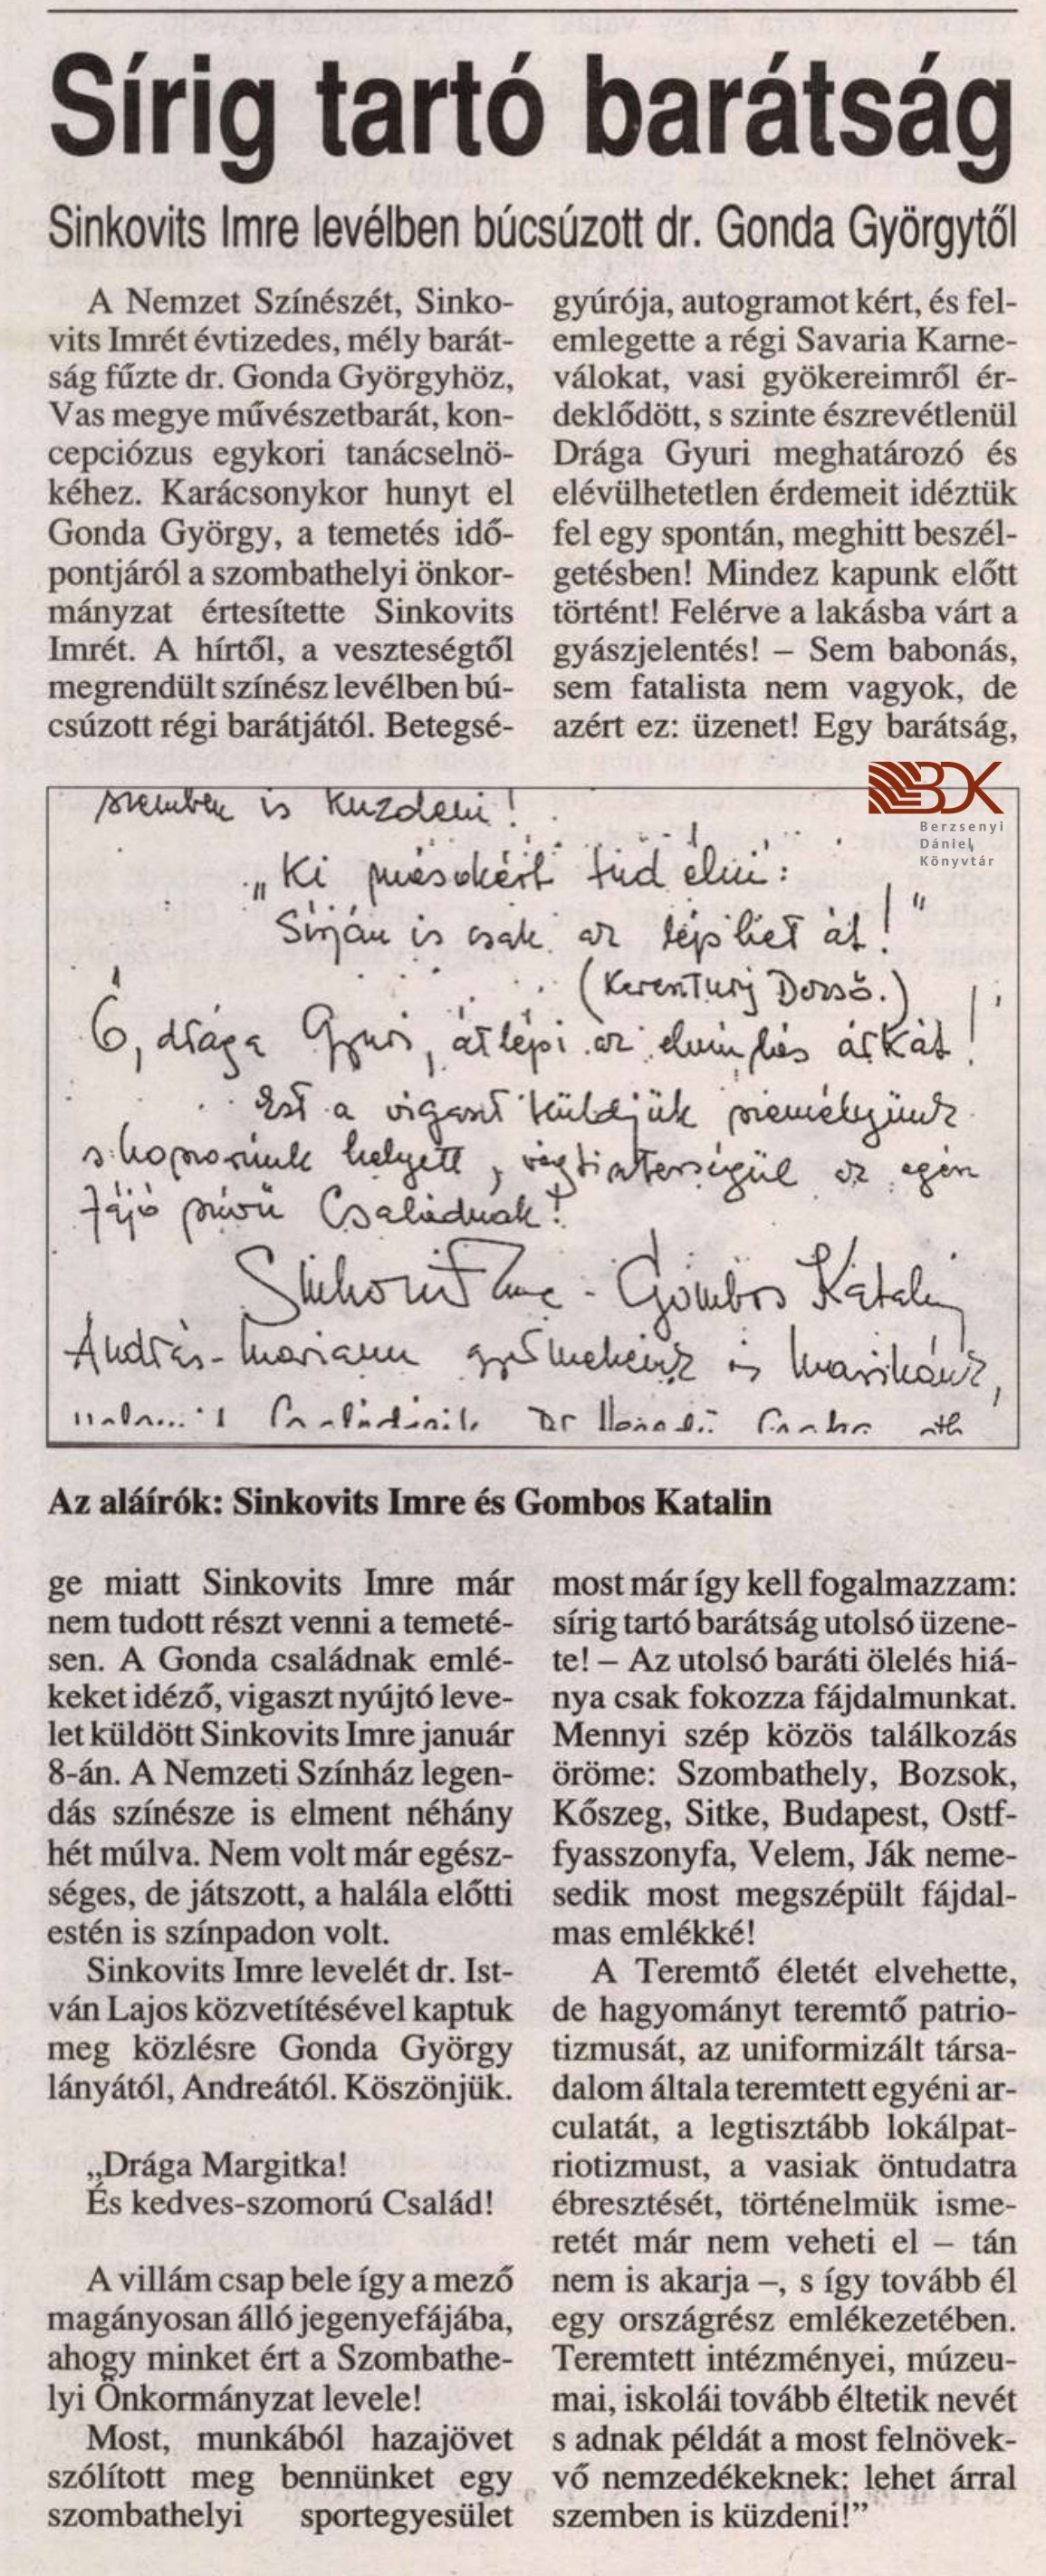 Sírig tartó barátság
Sinkovits Imre levélben búcsúzott dr. Gonda Györgytől
A Nemzet Színészét, Sinko-
vits Imrét évtizedes, mély barát-
ság fűzte dr. Gonda Györgyhöz,
Vas megye művészetbarát, kon-
cepciózus egykori tanácselnö-
kéhez. Karácsonykor hunyt el
Gonda György, a temetés idő-
pontjáról a szombathelyi önkor-
mányzat értesítette Sinkovits
Imrét. A hírtől, a veszteségtől
megrendült színész levélben bú-
csúzott régi barátjától. Betegsé-
ge miatt Sinkovits Imre már
nem tudott részt venni a temeté-
sen. A Gonda családnak emlé-
keket idéző, vigaszt nyújtó leve-
let küldött Sinkovits Imre január
8-án. A Nemzeti Színház legen-
dás színésze is elment néhány
hét múlva. Nem volt már egész-
séges, de játszott, a halála előtti
estén is színpadon volt.
Sinkovits Imre levelét dr. Ist-
ván Lajos közvetítésével kaptuk
meg közlésre Gonda György
lányától, Andreától. Köszönjük.
„Drága Margitka!
És kedves-szomorú Család!
A villám csap bele így a mező
magányosan álló jegenyefájába,
ahogy minket ért a Szombathe-
lyi Önkormányzat levele!
Most, munkából hazajövet
szólított meg bennünket egy
szombathelyi sportegyesület
gyúrója, autogramot kért, és fel-
emlegette a régi Savaria Karne-
válokat, vasi gyökereimről ér-
deklődött, s szinte észrevétlenül
Drága Gyuri meghatározó és
elévülhetetlen érdemeit idéztük
fel egy spontán, meghitt beszél-
getésben! Mindez kapunk előtt
történt! Felérve a lakásba várt a
gyászjelentés! – Sem babonás,
sem fatalista nem vagyok, de
azért ez: üzenet! Egy barátság,
most már így kell fogalmazzam:
sírig tartó barátság utolsó üzene-
te! – Az utolsó baráti ölelés hiá-
nya csak fokozza fájdalmunkat.
Mennyi szép közös találkozás
öröme: Szombathely, Bozsok,
Kőszeg, Sitke, Budapest, Ostf-
fyasszonyfa, Velem, Ják neme-
sedik most megszépült fájdal-
mas emlékké!
A Teremtő életét elvehette,
de hagyományt teremtő patrio-
tizmusát, az uniformizált társa-
dalom általa teremtett egyéni ar-
culatát, a legtisztább lokálpat-
riotizmust, a vasiak öntudatra
ébresztését, történelmük isme-
retét már nem veheti el – tán
nem is akarja –, s így tovább él
egy országrész emlékezetében.
Teremtett intézményei, múzeu-
mai, iskolái tovább éltetik nevét
s adnak példát a most felnövek-
vő nemzedékeknek: lehet árral
szemben is küzdeni!”
BDK
Berzsenyi
Dániel
Könyvtár
szemben is küzdeni!
„Ki másokért tud élni:
Sírján is csak az léphet át!"
(Keresztury Dezső.)
Ő, drága Gyuri, átlépi az elmúlás árkát!
Ezt a vigaszt küldjük személyünk
s koszorúnk helyett, végtisztességül az egész
fájó szívű Családnak!
Sinkovits Imre - Gombos Katalin
András-Mariann gyermekeink és Marikánk,
Az aláírók: Sinkovits Imre és Gombos Katalin